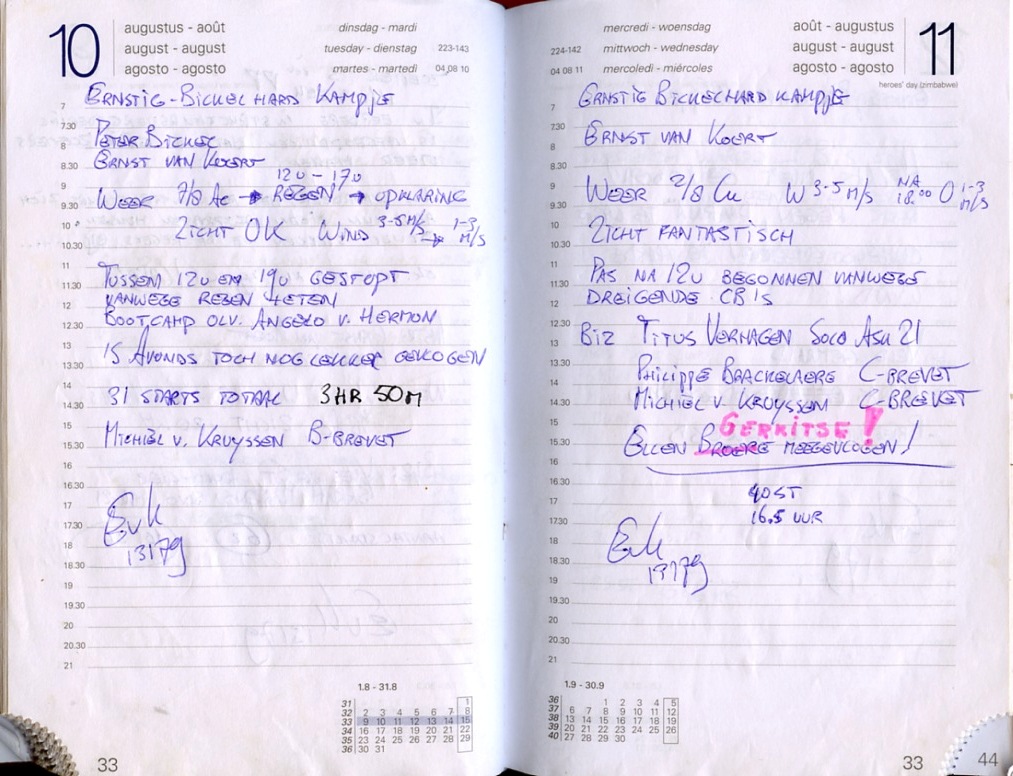 10
augustus - août
august - august
agosto - agosto
dinsdag - mardi
tuesday - dienstag 223-143
martes - martedi 04 08 10
7 ERNSTIG-BICKELHARD KAMPJE
7.30
8 PETER BICKEL
8.30 ERNST VAN KOERT
12U - 17U
9 WEER 7/8 Ac → REGEN → OPKLARING
9.30
10 ZICHT OK WIND 3-5 M/S → 1-3 M/S
10.30
11 TUSSEN 12U EN 19U GESTOPT
11.30 VANWEGE REGEN + ETEN
12 BOOTCAMP OLV. ANGELO V. HERMON
12.30
13 'S AVONDS TOCH NOG LEKKER GEVLOGEN
13.30
14 31 STARTS TOTAAL 3HR 50M
14.30
15 MICHIËL V. KRUYSSEN B-BREVET
15.30
16
16.30
17 EvK
17.30
18 13179
18.30
19
19.30
20
20.30
21
1.8 - 31.8
31 1
32 2 3 4 5 6 7 8
33 9 10 11 12 13 14 15
34 16 17 18 19 20 21 22
35 23 24 25 26 27 28 29
36 30 31
33
mercredi - woensdag
224-142 mittwoch - wednesday
04 08 11 mercoledi - miércoles
août - augustus
august - august
agosto - agosto
11
heroes' day (zimbabwe)
7 ERNSTIG BICKELHARD KAMPJE
7.30
8 ERNST VAN KOERT
8.30
9 WEER 2/8 Cu W 3-5 M/S NA 18.00 O 1-3 M/S
9.30
10 ZICHT FANTASTISCH
10.30
11 PAS NA 12U BEGONNEN VANWEGE
11.30 DREIGENDE CB'S
12
12.30
13 BIZ TITUS VERHAGEN SOLO ASK 21
13.30 PHILIPPE BRACKELAERE C-BREVET
14
14.30 MICHIËL V. KRUYSSEN C-BREVET
15 GERRITSE!
15.30 ELLEN BROERE MEEGEVLOGEN!
16
16.30 40ST
17 16.5 UUR
17.30
18 EvK
18.30 13179
19
19.30
20
20.30
21
1.9 - 30.9
36 1 2 3 4 5
37 6 7 8 9 10 11 12
38 13 14 15 16 17 18 19
39 20 21 22 23 24 25 26
40 27 28 29 30
33 44